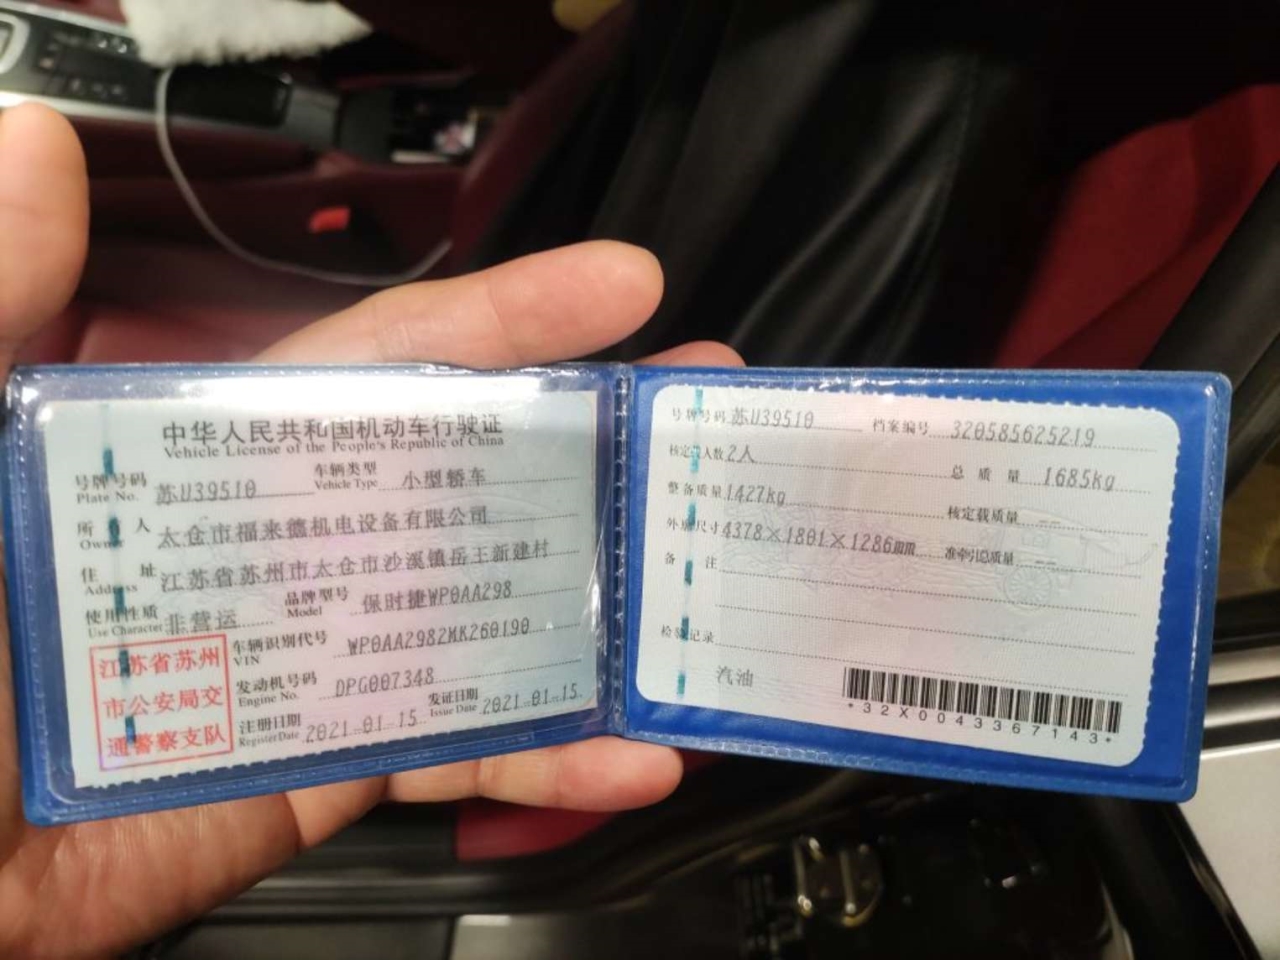 中华人民共和国机动车行驶证
Vehicle License of the People's Republic of China
号牌号码 苏U39510 车辆类型 小型轿车
Plate No. Vehicle Type
所有人 太仓市福来德机电设备有限公司
Owner
住址 江苏省苏州市太仓市沙溪镇岳王新建村
Address
使用性质 非营运 品牌型号 保时捷WP0AA298
Use Character Model
江苏省苏州
市公安局交
通警察支队
车辆识别代号 WP0AA2982MK260190
VIN
发动机号码 DPG007348
Engine No.
注册日期 2021-01-15 发证日期 2021-01-15
Register Date Issue Date
号牌号码 苏U39510 档案编号 320585625219
核定载人数 2人 总质量 1685kg
整备质量 1427kg 核定载质量 --
外廓尺寸 4378×1801×1286mm 准牵引总质量 --
备注
检验记录
汽油
*32X0043367143*